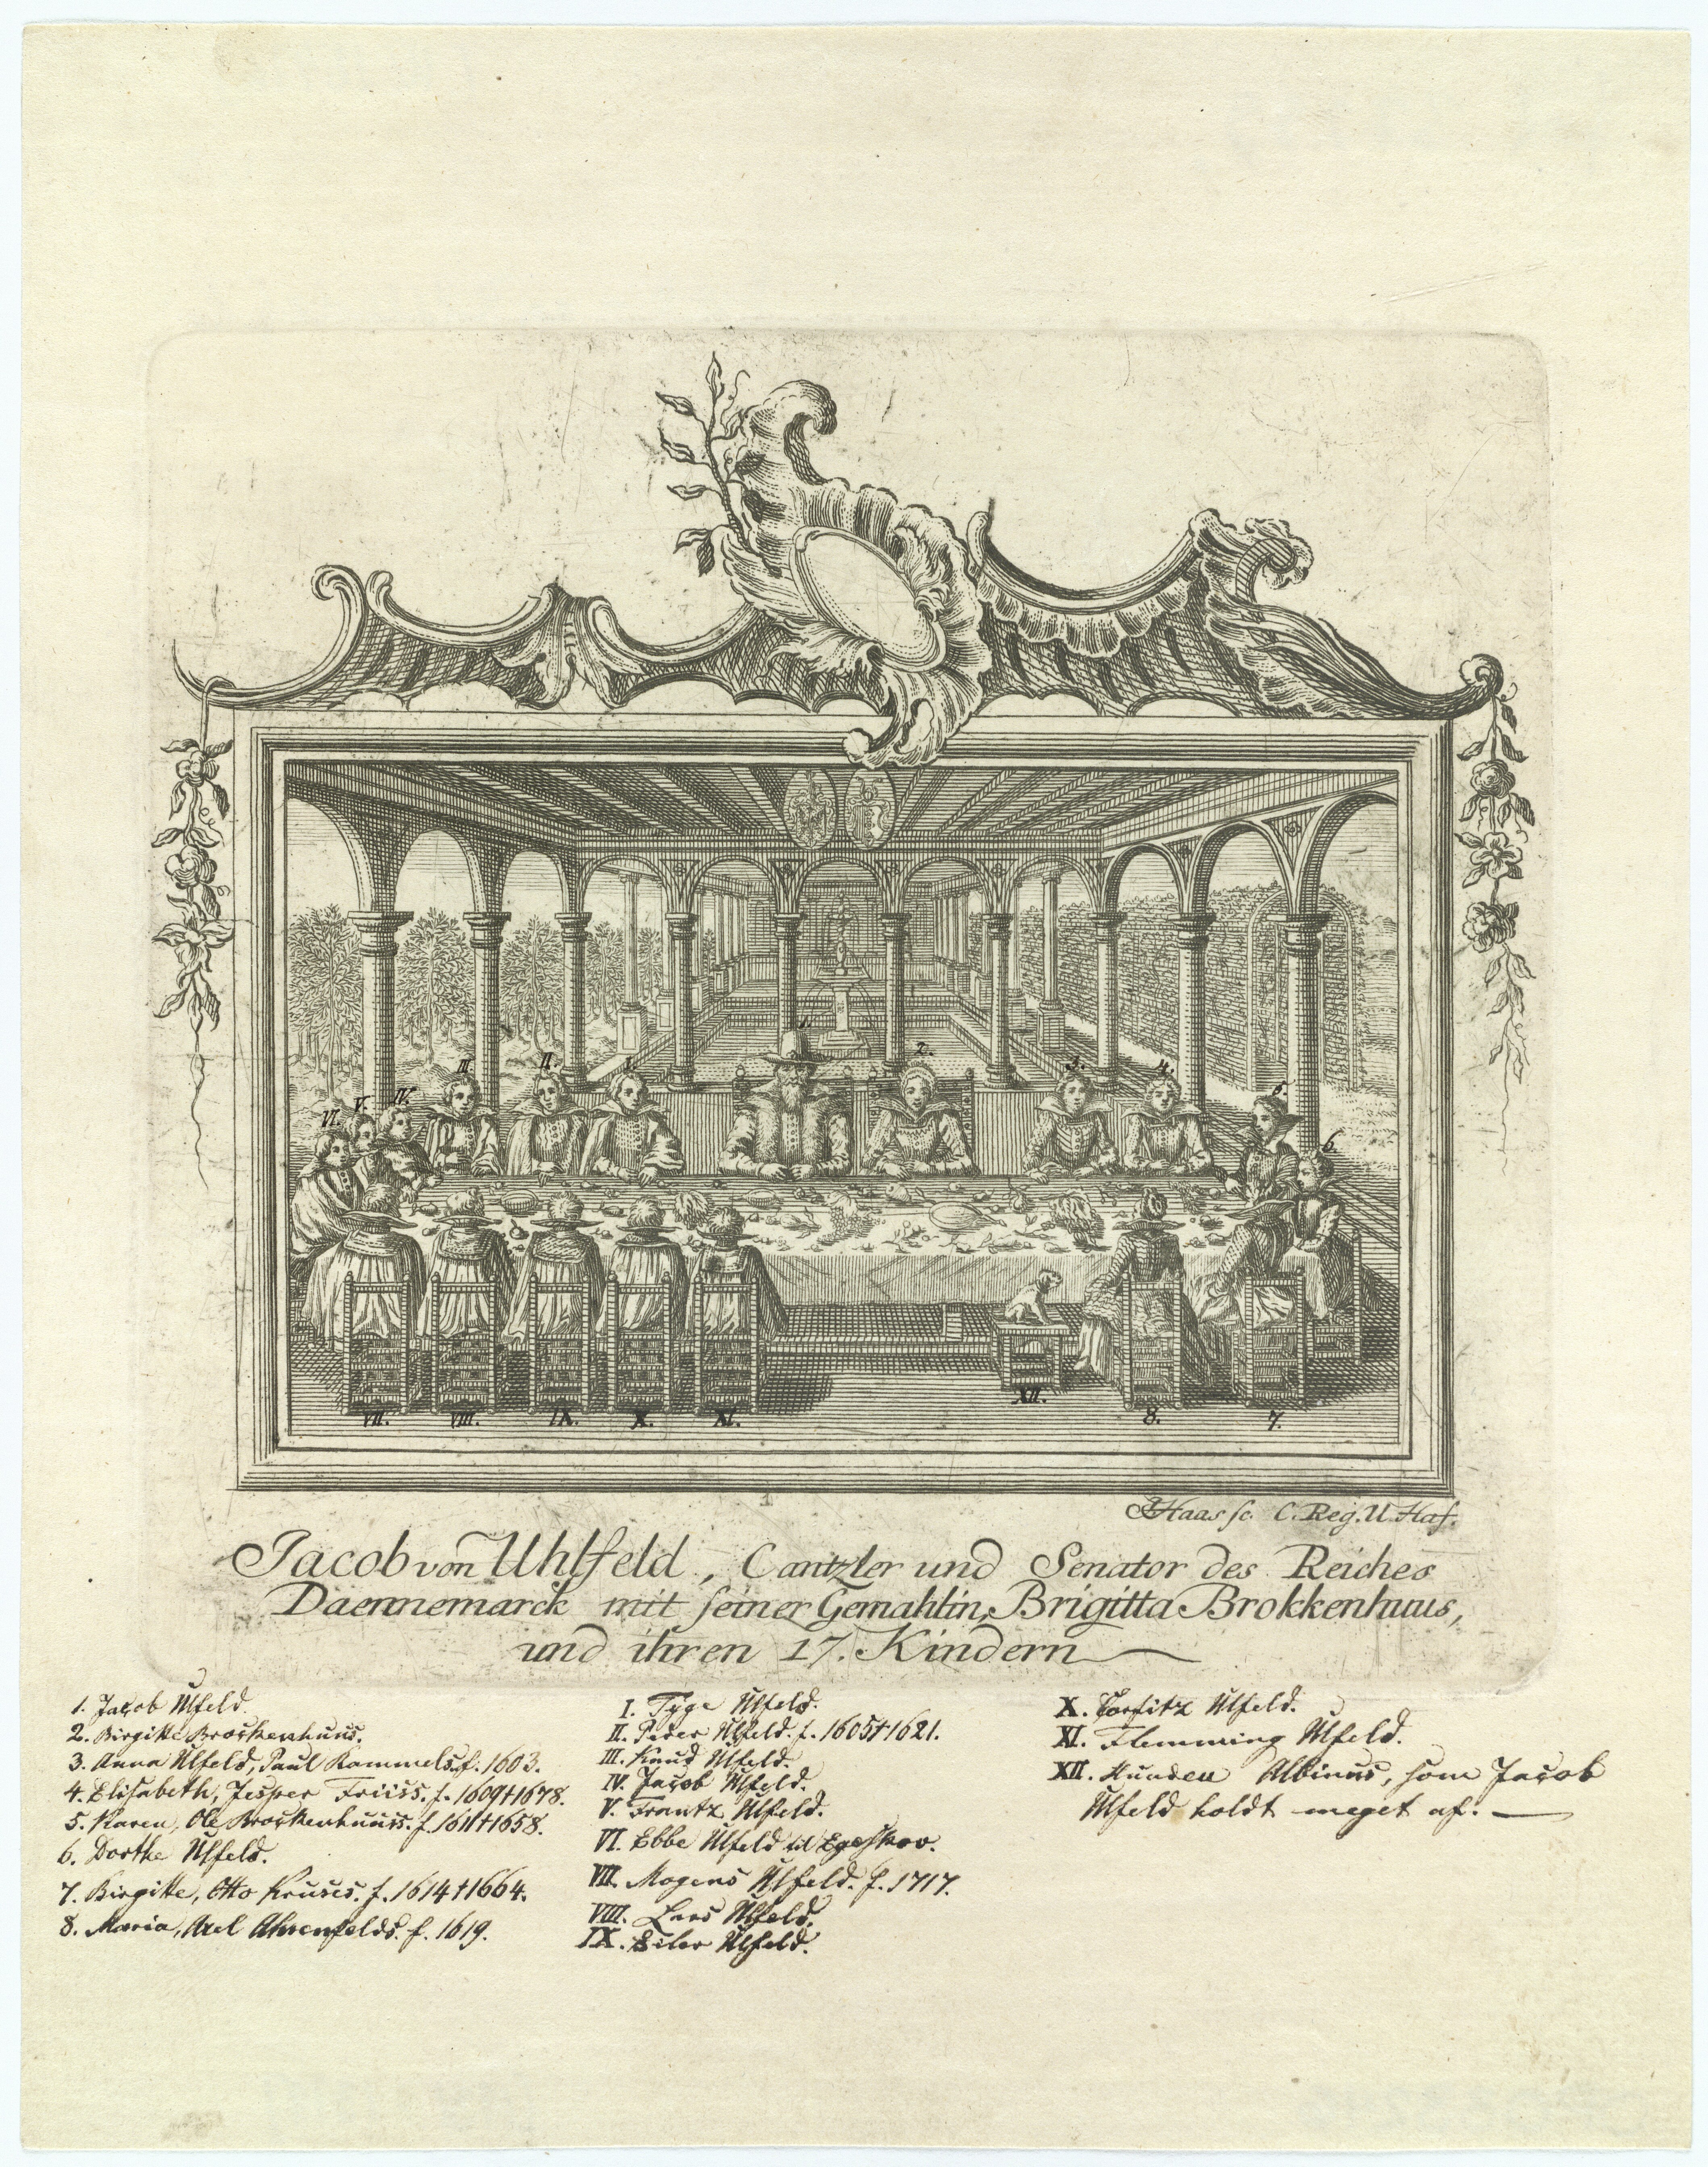 1.
2.
III.
II.
I.
3.
4.
VI.
V.
IV.
5.
6.
XII.
VII.
VIII.
IX.
X.
XI.
8.
7.
1
Haas sc. C. Reg. U. Haf.
Jacob von Uhlfeld, Cantzler und Senator des Reiches
Daennemarck mit seiner Gemahlin, Brigitta Brokkenhuus,
und ihren 17. Kindern
1. Jacob Ulfeld.
2. Birgitte Brockenhuus.
3. Anna Ulfeld, Paul Rammels. f. 1603.
4. Elisabeth, Jesper Friiss. f. 1609 † 1678.
5. Karen, Ole Brockenhuus. f. 1611 † 1658.
6. Dorthe Ulfeld.
7. Birgitte, Otto Kruses. f. 1614 † 1664.
8. Maria, Axel Ahrenfelds. f. 1619.
I. Tyge Ulfeld.
II. Peder Ulfeld. f. 1605 † 1621.
III. Knud Ulfeld.
IV. Jacob Ulfeld.
V. Frantz Ulfeld.
VI. Ebbe Ulfeld til Egeskov.
VII. Mogens Ulfeld. f. 1717.
VIII. Laus Ulfeld.
IX. Eiler Ulfeld.
X. Corfitz Ulfeld.
XI. Flemming Ulfeld.
XII. Hunden Albinus, som Jacob
Ulfeld holdt meget af.